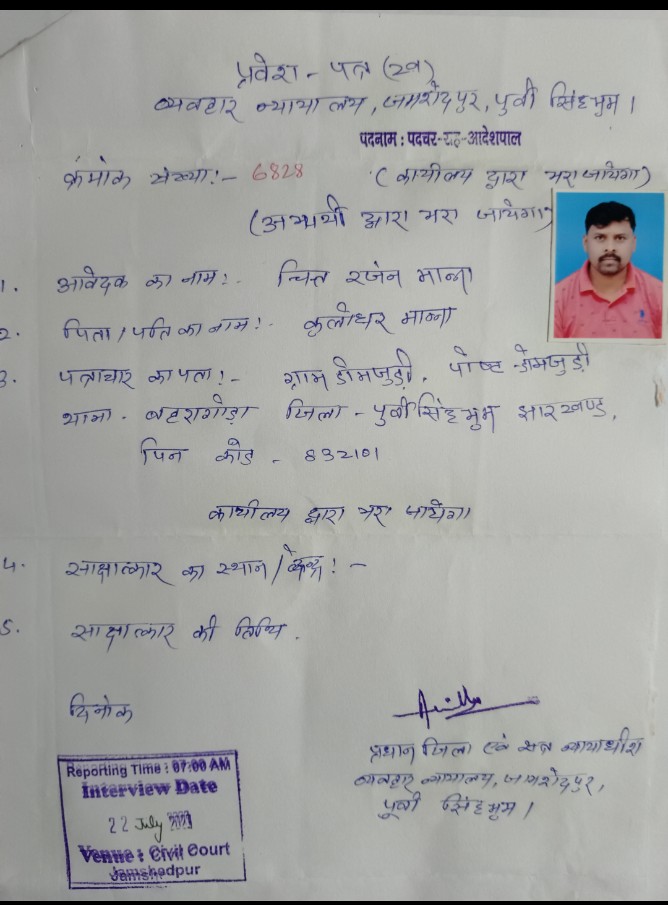 प्रवेश - पत्र (ख)
व्यवहार न्यायालय, जमशेदपुर, पुर्वी सिंहभुम।
पदनाम : पदचर-सह-आदेशपाल
क्रमांक संख्या:- 6828 (कार्यालय द्वारा भरा जायेगा)
(अभ्यर्थी द्वारा भरा जायेगा)
1. आवेदक का नाम:- चित्त रजंन मान्ना
2. पिता/पति का नाम:- मान्ना
3. पत्राचार का पता:- ग्राम डोमजुड़ी, पोष्ट - डोमजुड़ी
थाना - बहरागोड़ा जिला - पुर्वी सिंहभुम झारखण्ड,
पिन कोड - 832101
कार्यालय द्वारा भरा जायेगा
4. साक्षात्कार का स्थान/केन्द्र:-
5. साक्षात्कार की तिथि.
दिनांक
प्रधान जिला एवं सत्र न्यायाधीश
व्यवहार न्यायालय, जमशेदपुर,
पूर्वी सिंहभुम।
Reporting Time : 07:00 AM
Interview Date
22 July
Venue : Civil Court
Jamshedpur